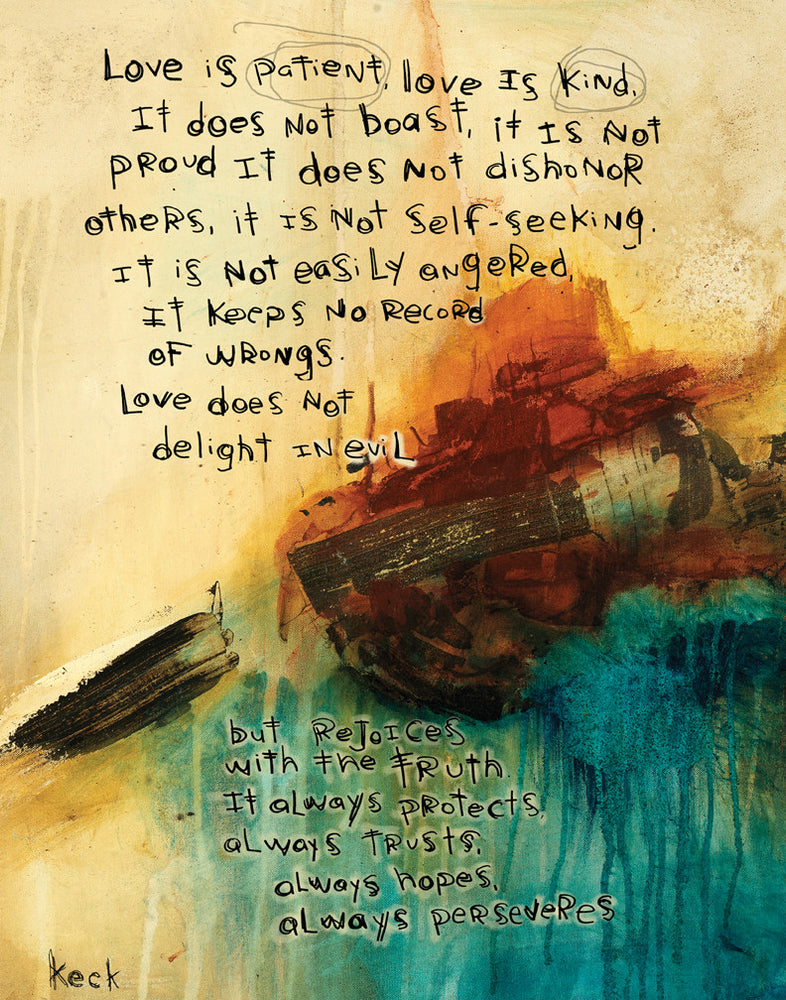 Love is patient, love Is kind.
It does not boast, it Is Not
proud It does Not dishoNoR
otheRs, it is Not self-seeking.
It is Not easily angeRed,
It Keeps No Record
of wRoNgs.
Love does Not
delight IN evil
but RejoIces
with the TRuth
It always pRotects,
always tRusts,
always hopes,
always peRseveRes
Keck